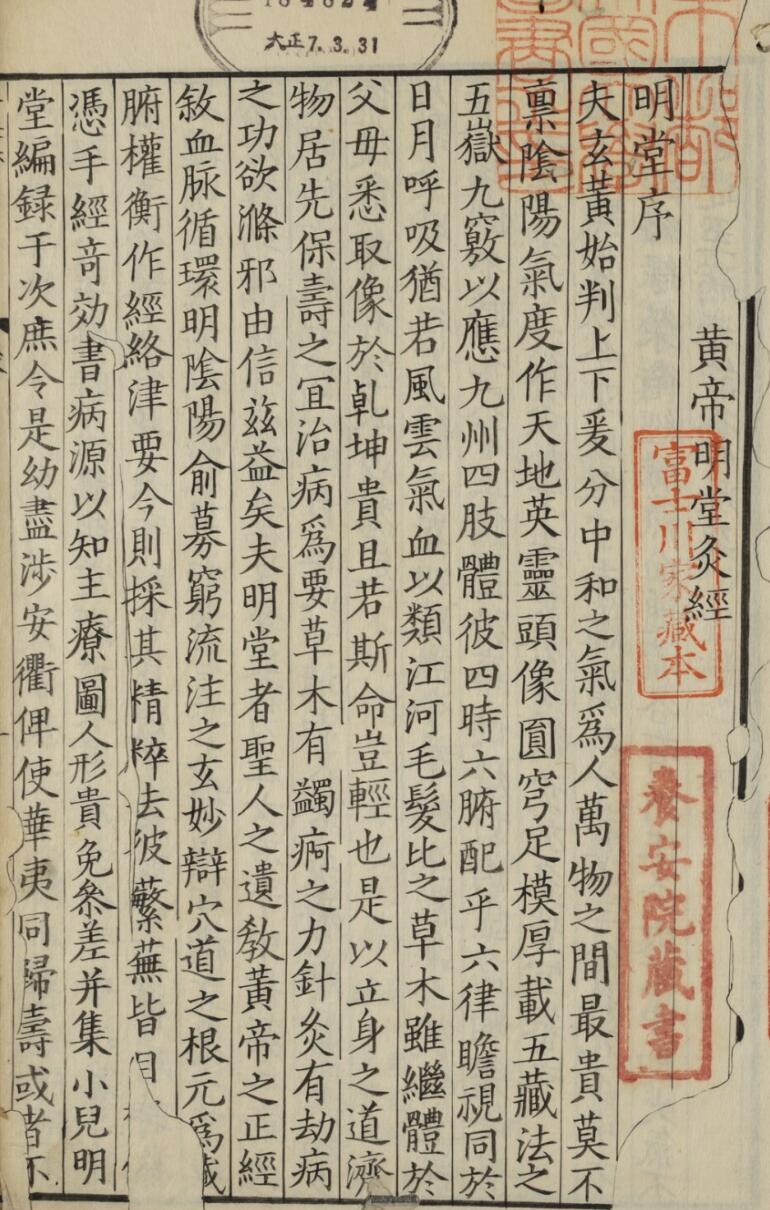 大正7.3.31
黄帝明堂灸經
富士川家藏本
養安院藏書
明堂序
夫玄黃始判上下爰分中和之氣爲人萬物之間最貴莫不
禀陰陽氣度作天地英靈頭像圎穹足模厚載五藏法之
五嶽九竅以應九州四肢體彼四時六腑配乎六律瞻視同於
日月呼吸猶若風雲氣血以類江河毛髮比之草木雖繼體於
父母悉取像於乹坤貴且若斯命豈輕也是以立身之道濟
物居先保壽之冝治病爲要草木有蠲痾之力針灸有劫病
之功欲滌邪由信兹益矣夫明堂者聖人之遺敎黃帝之正經
敘血脉循環明陰陽俞募窮流注之玄妙辯穴道之根元爲藏
腑權衡作經絡津要今則採其精粹去彼蘩蕪皆目
憑手經竒効書病源以知主療圖人形貴免叅差并集小兒明
堂編録于次庶令是幼盡涉安衢俾使華夷同歸壽或者不